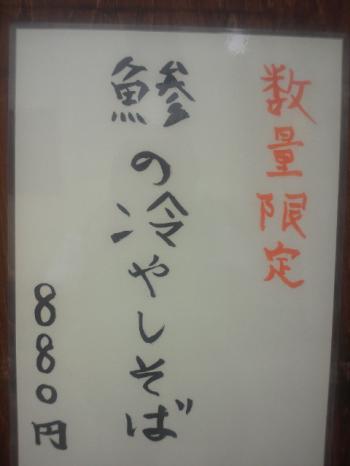 数量限定
鯵の冷やしそば
880円